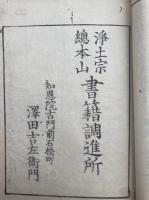 淨土宗
總本山
書籍調進所
知恩院古門前石橋町
澤田吉左衛門